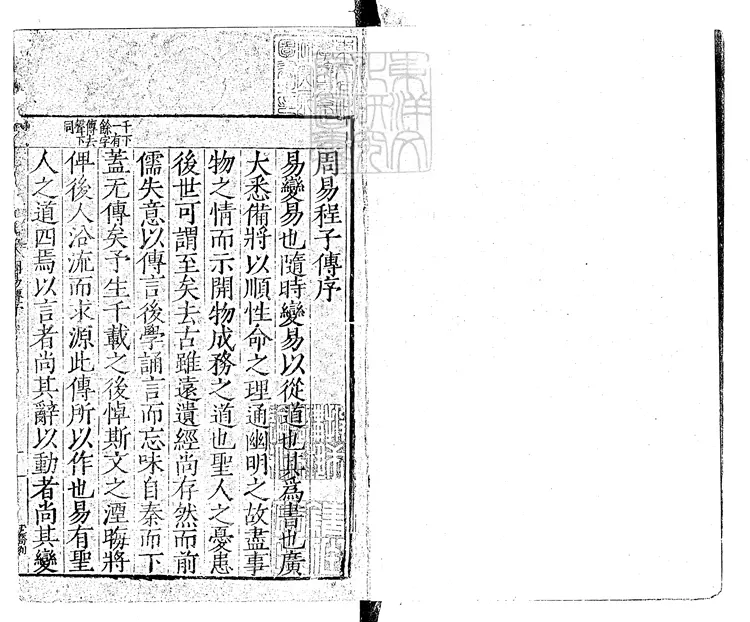 周易程子傳序
易變易也隨時變易以從道也其爲書也廣
大悉備將以順性命之理通幽明之故盡事
物之情而示開物成務之道也聖人之憂患
後世可謂至矣去古雖遠遺經尚存然而前
儒失意以傳言後學誦言而忘味自秦而下
蓋无傳矣予生千載之後悼斯文之湮晦將
俾後人沿流而求源此傳所以作也易有聖
人之道四焉以言者尚其辭以動者尚其變
千下
一有
餘字
傳去
聲下
同